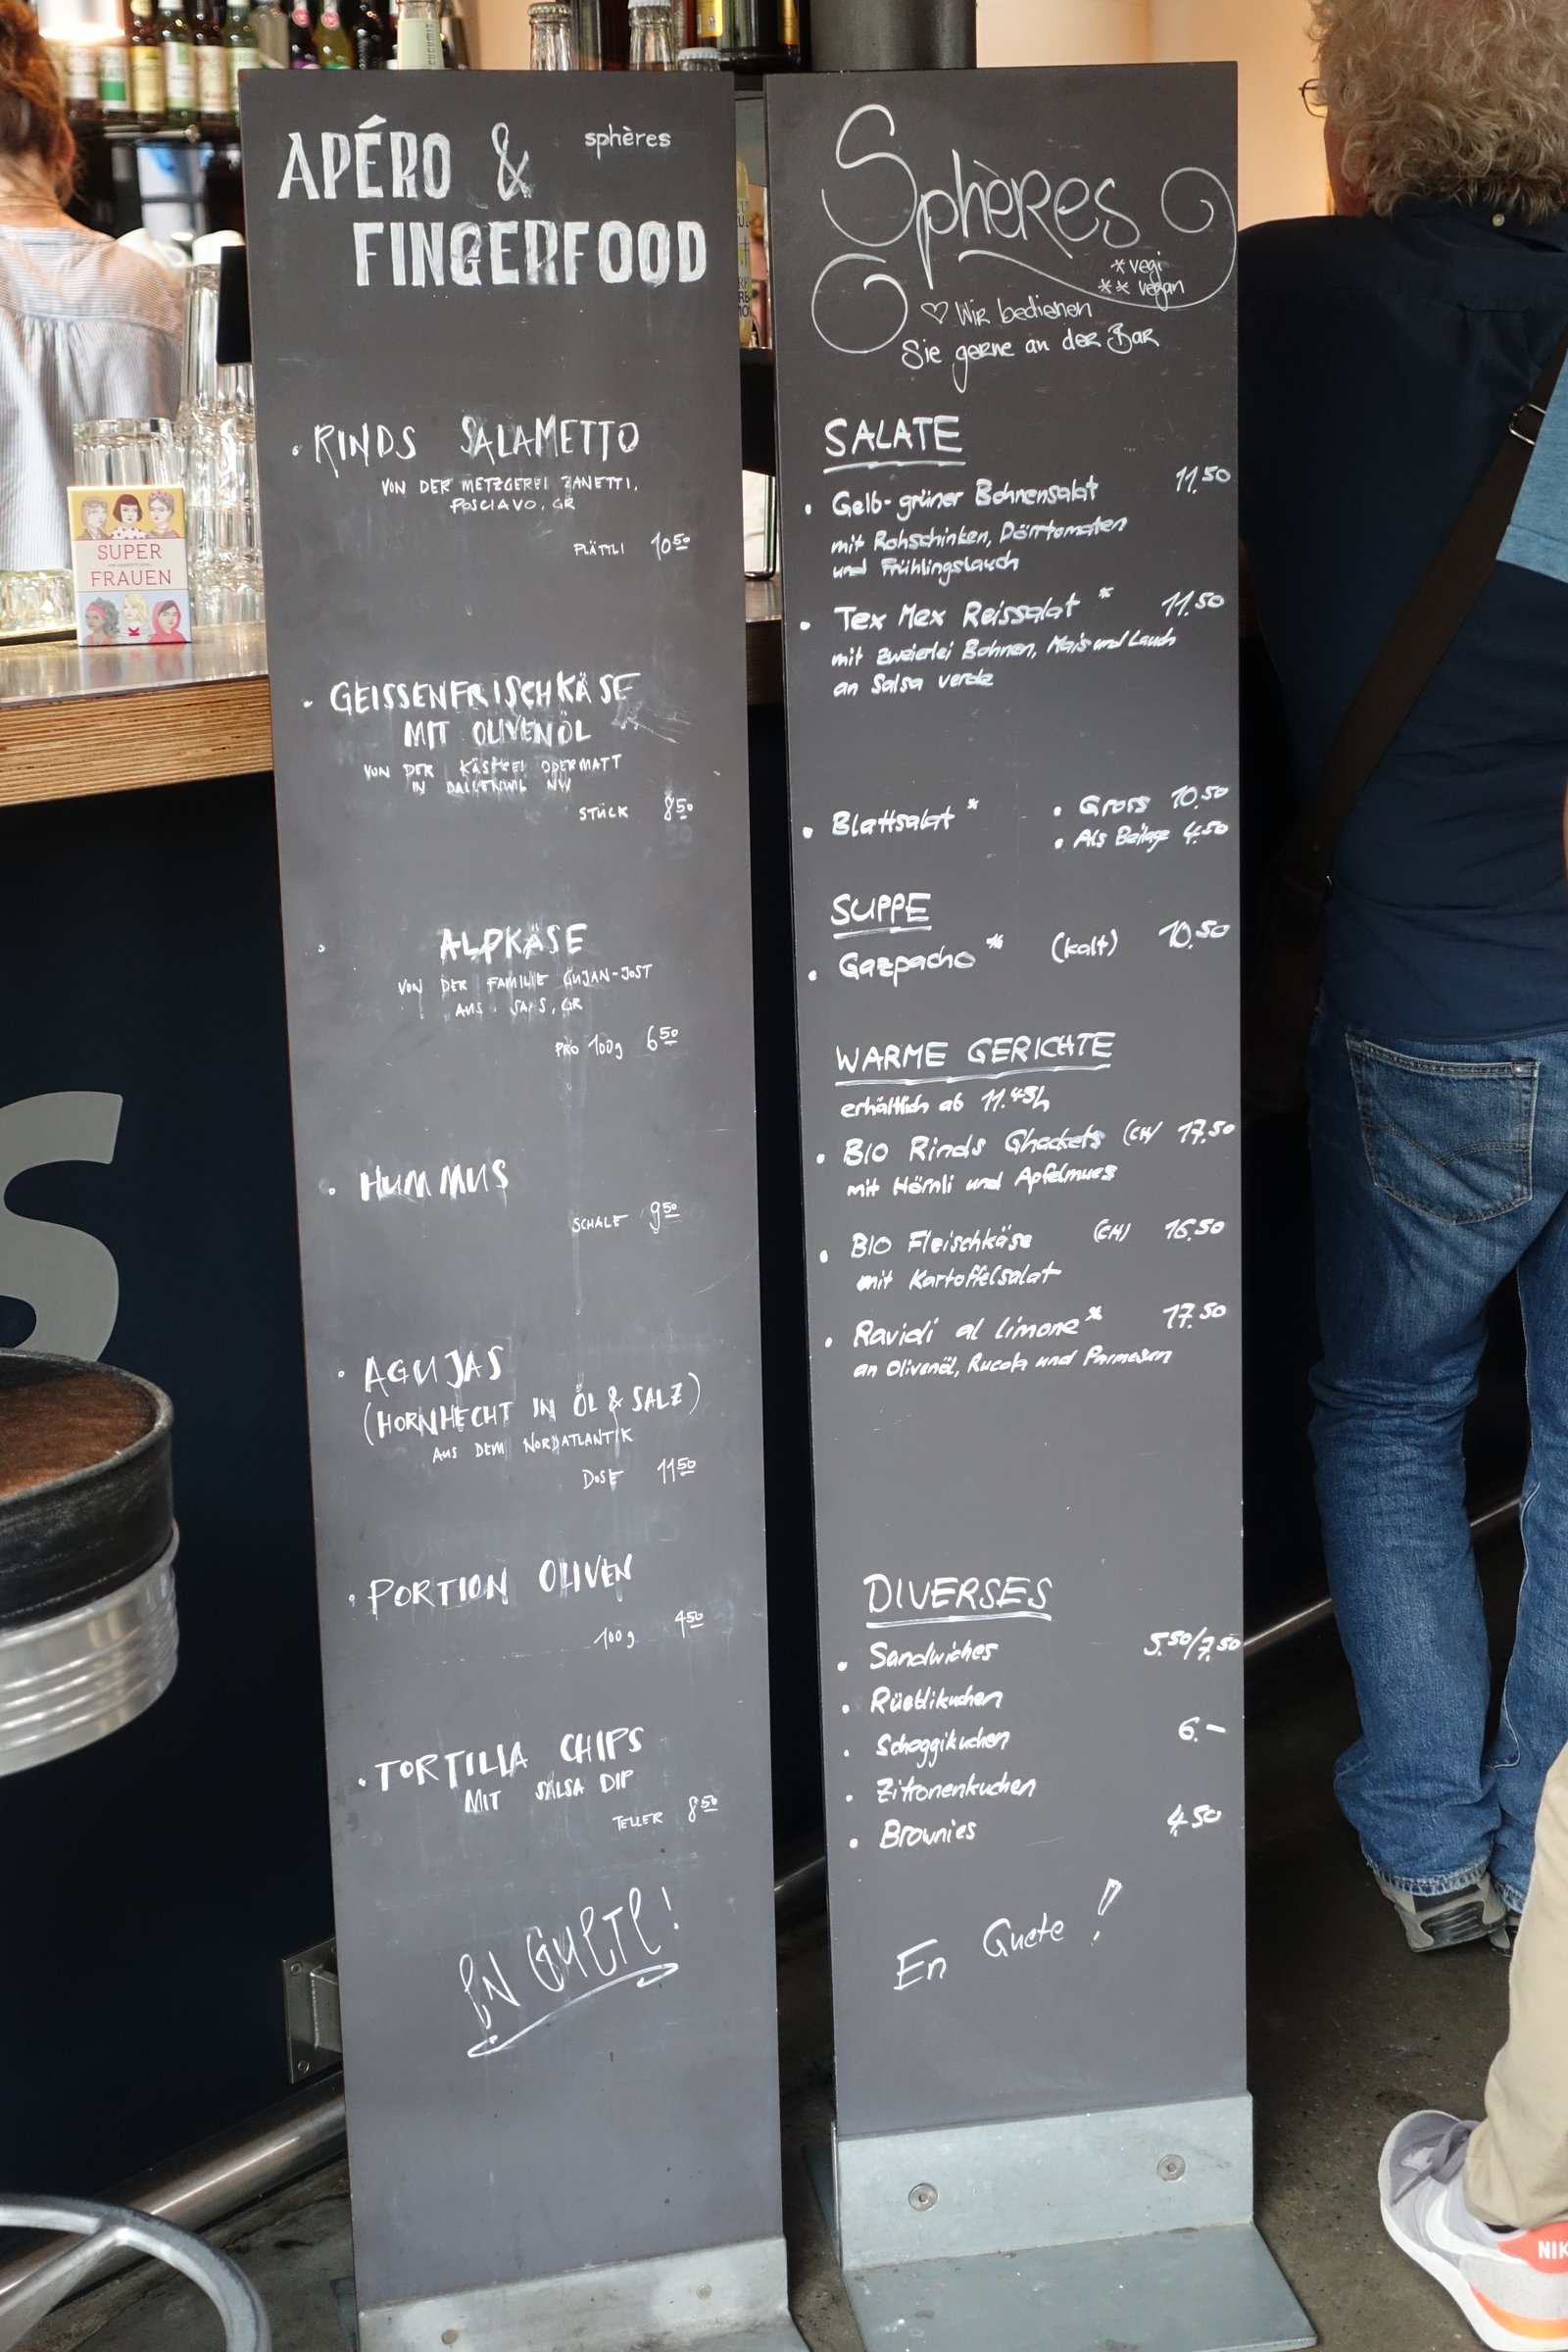 APÉRO &
sphères
FINGERFOOD
• RINDS SALAMETTO
VON DER METZGEREI ZANETTI,
POSCIAVO, GR
PLÄTTLI 10 50
• GEISSENFRISCHKÄSE
MIT OLIVENÖL
VON DER KÄSEREI ODERMATT
IN DALLENWIL NW
STÜCK 8 50
• ALPKÄSE
VON DER FAMILIE GUJAN-JOST
AUS , GR
PRO 100g 6 50
• HUMMUS
SCHALE 9 50
• AGUJAS
(HORNHECHT IN ÖL & SALZ)
AUS DEM NORDATLANTIK
DOSE 11 50
• PORTION OLIVEN
100g 4 50
• TORTILLA CHIPS
MIT SALSA DIP
TELLER 8 50
EN GUETE!
Sphères
* vegi
** vegan
♡ Wir bedienen
Sie gerne an der Bar
SALATE
• Gelb-grüner Bohnensalat 11.50
mit Rohschinken, Dörrtomaten
und Frühlingslauch
• Tex Mex Reissalat * 11.50
mit zweierlei Bohnen, Mais und Lauch
an Salsa verde
• Blattsalat * • Gross 10.50
• Als Beilage 4.50
SUPPE
• Gazpacho * (kalt) 10.50
WARME GERICHTE
erhältlich ab 11.45h
• BIO Rinds Ghackets (CH) 17.50
mit Hörnli und Apfelmues
• BIO Fleischkäse (CH) 16.50
mit Kartoffelsalat
• Ravioli al limone * 17.50
an Olivenöl, Rucola und Parmesan
DIVERSES
• Sandwiches 5.50/7.50
• Rüeblikuchen
• Schoggikuchen 6.–
• Zitronenkuchen
• Brownies 4.50
En Guete!
SUPER
FRAUEN
S
NIK